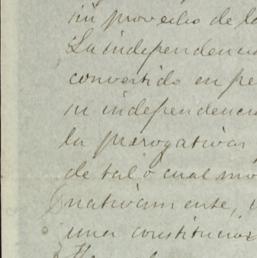 sin provecho de la
La independencia
convertido en pe
ni independencia
la prerogativas
de tal o cual mo
nativamente,
una constitucion